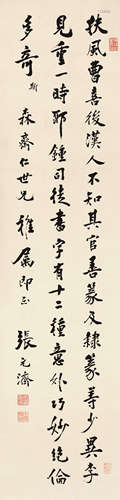 扶風曹喜後漢人不知其官善篆及隸篆筭少異李
見重一時耶鍾司徒書字有十二種意外巧妙絕倫
多奇
森齋仁世兄雅屬即正
張元濟